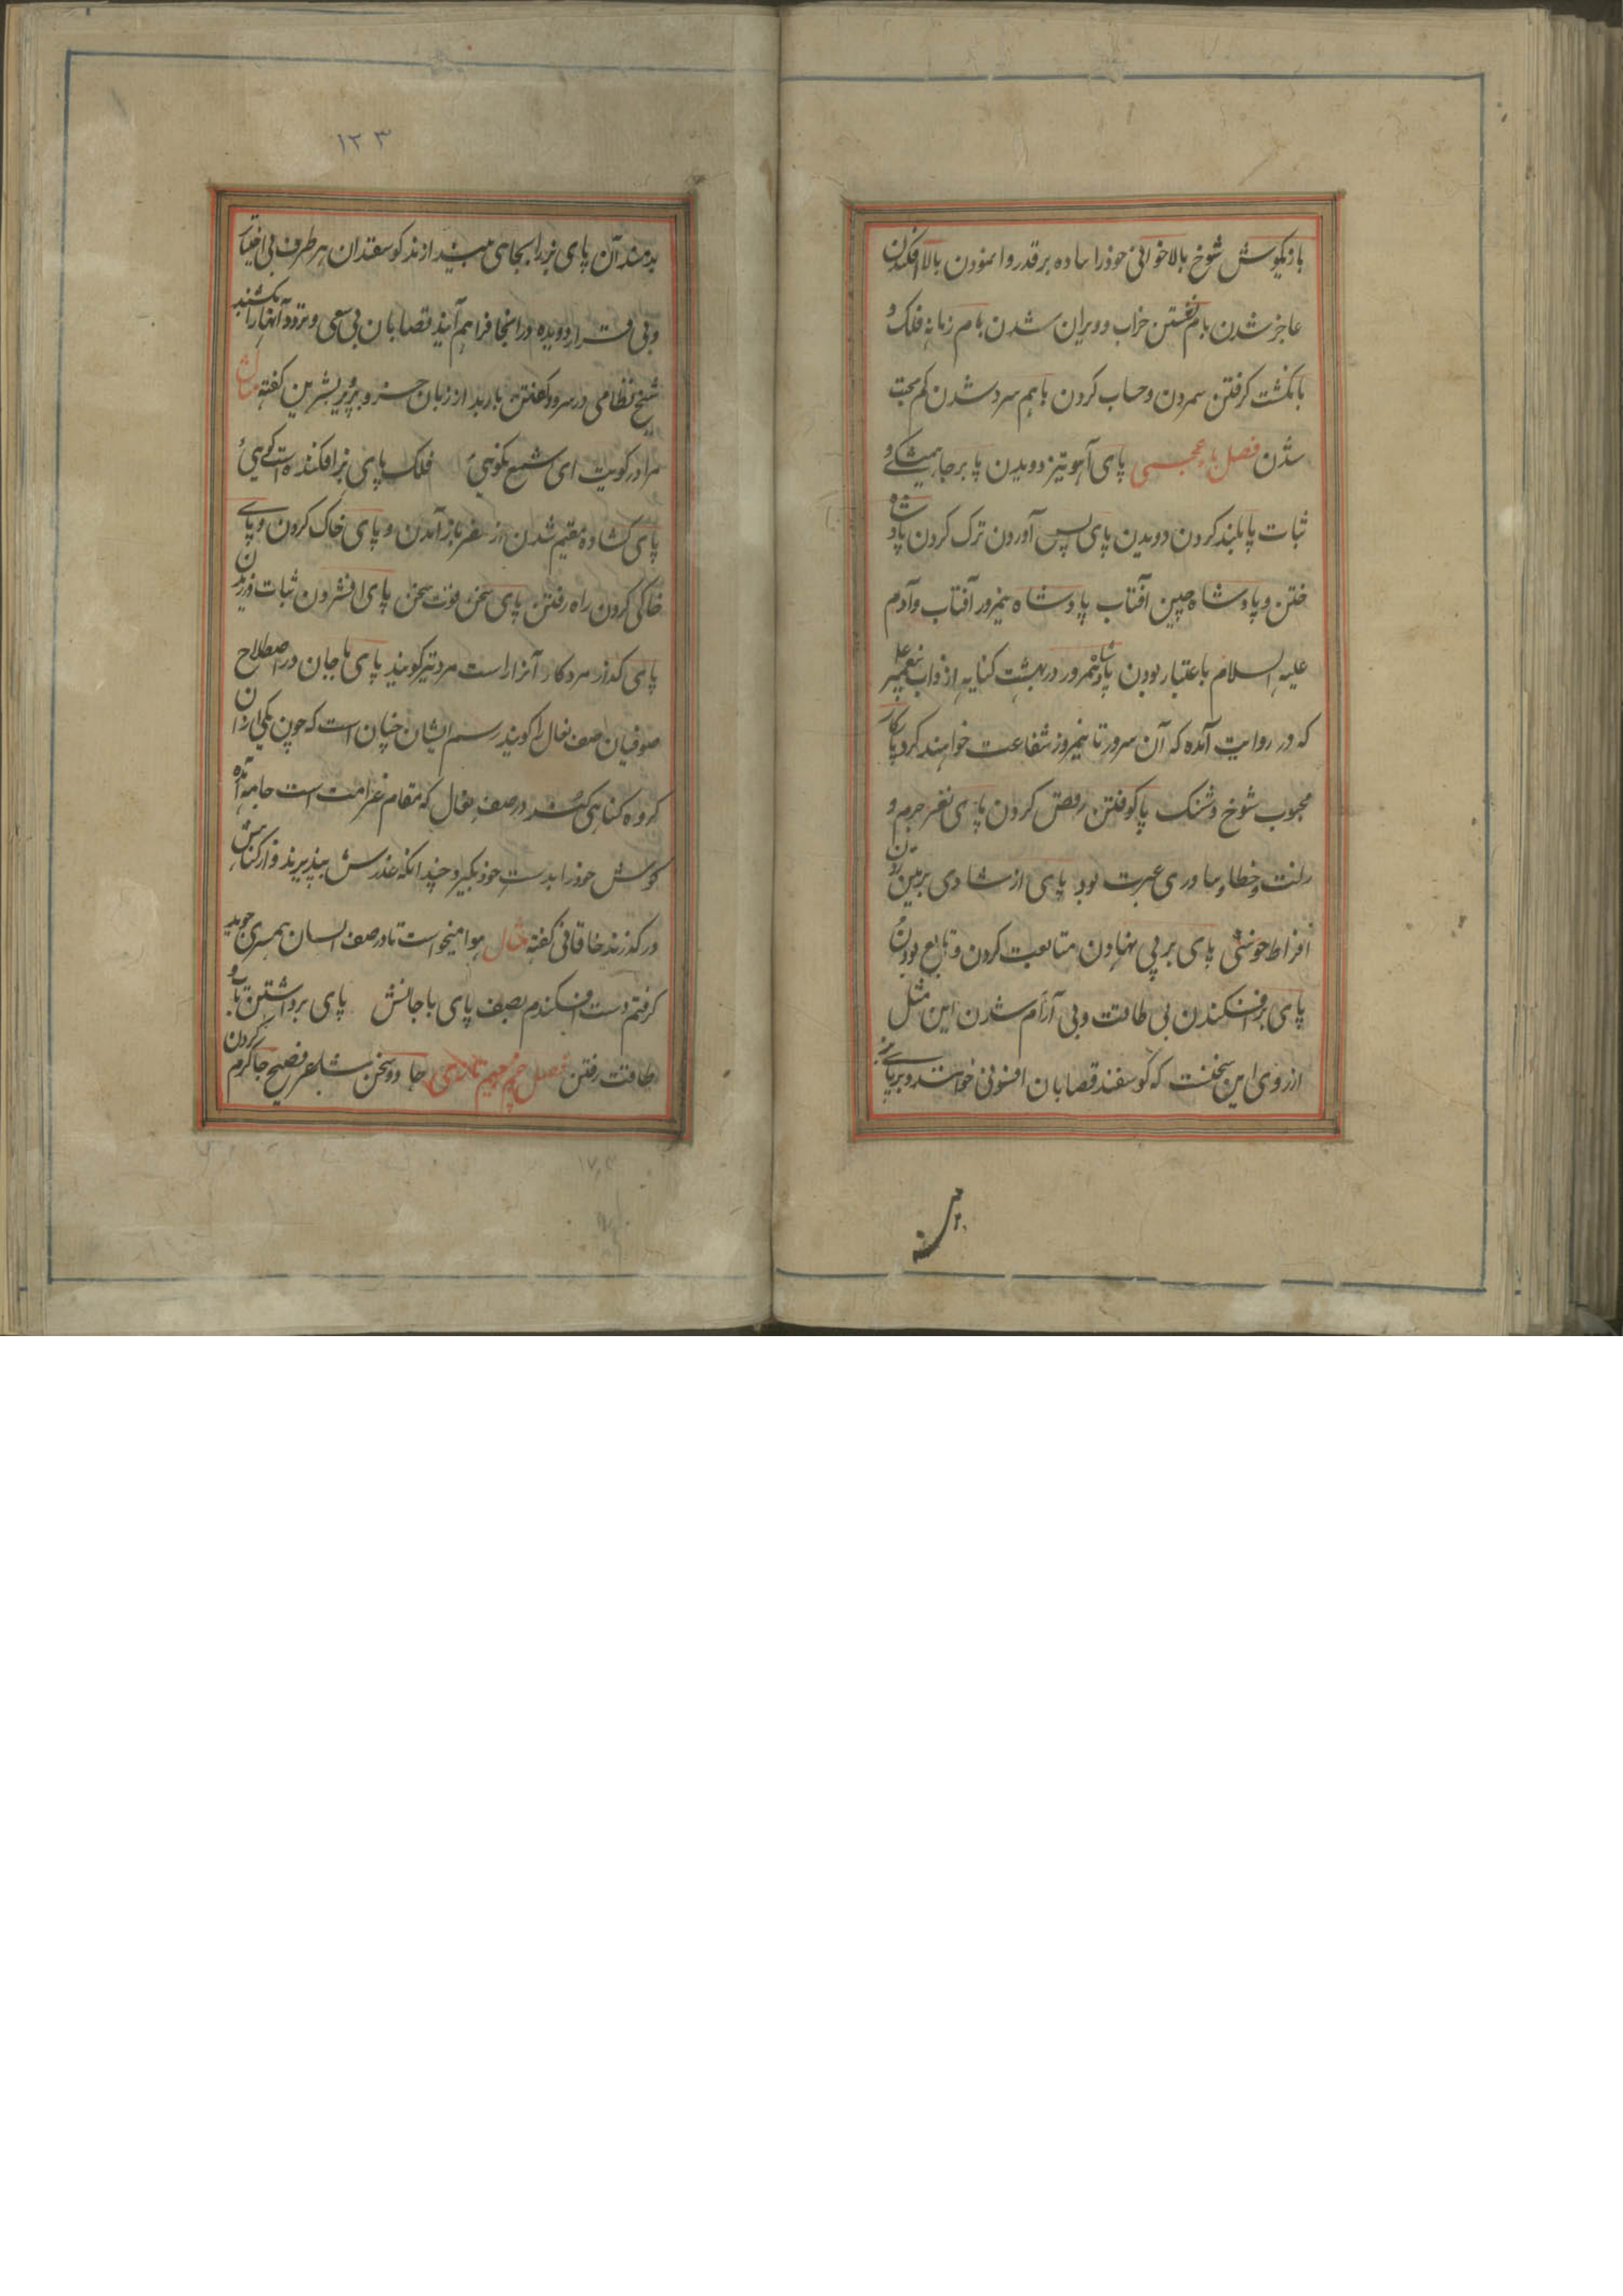 بازیگوش شوخ بالاخوانی خود را ساده برقدر وا نمودن بالا افکندن
عاجز شدن بام نشستن خراب و ویران شدن بام زمانه فلک و
بانکشت کرفتن شمردن و حساب کردن باهم سرد شدن کم محبت
شدن فصل باء عجمی پای آهو تیز دویدن پا برجا همیشکی و
ثبات پا بلند کردن دویدن پای پس آوردن ترک کردن پادشاه
ختن و پادشاه چین آفتاب پادشاه نیمروز آفتاب و آدم
علیه السلام باعتبار بودن پادشاه نیمروز در بهشت کنایه از ذات پیغمبر
که در روایت آمده که آن سرور تا نیمروز شفاعت خواهند کرد پاکار
محبوب شوخ و شنک پا کوفتن رقص کردن پای نغز جرم و
زلت و خطا و ماوری عبرت بود پای از شادی بر زمین زدن
افراط خوشی پای بر پی نهادن متابعت کردن و تابع بودن
پای بز افکندن بی طاقت و بی آرام شدن این مثل
از روی این سخنست که کوسفند قصابان افسونی خوانند و بر پای بز
بدمند آن پای بز را بجای می‌بیندازند کوسفندان هر طرف بی اختیار
و بی قرار دویده در آنجا فراهم آیند قصابان بی سعی و تردد آنها را بکشند
شیخ نظامی در سرود کفتن باربد از زبان خسرو پرویز بشیرین کفته مثال
مرا در کویت ای شمع نکوئی فلک پای بز افکنده است کوئی
پای کشاده مقیم شدن از سفر باز آمدن و پای خاک کردن و پای
خاکی کردن راه رفتن پای سخن قوت سخن پای افشردن ثبات ورزیدن
پای کذار مردکار آنرا راست مرد تیر کویند پای ماچان در اصطلاح
صوفیان صف نعال را کویند رسم ایشان چنان است که چون یکی از آن
کروه کناهی کند در صف نعال که مقام غرامت است جامه آمده
کوش خود را بدست خود بکیرد چندانکه عذرش بپذیرند و از کناهش
درکذرند خاقانی کفته مثال هوا میخواست تا در صف السان همسری جوید
کرفتم دست افکندم بصف پای ماچانش پای برداشتن تاب و
طاقت رفتن فصل جیم تازی جادو سخن شاعر فصیح جا کرم کردن